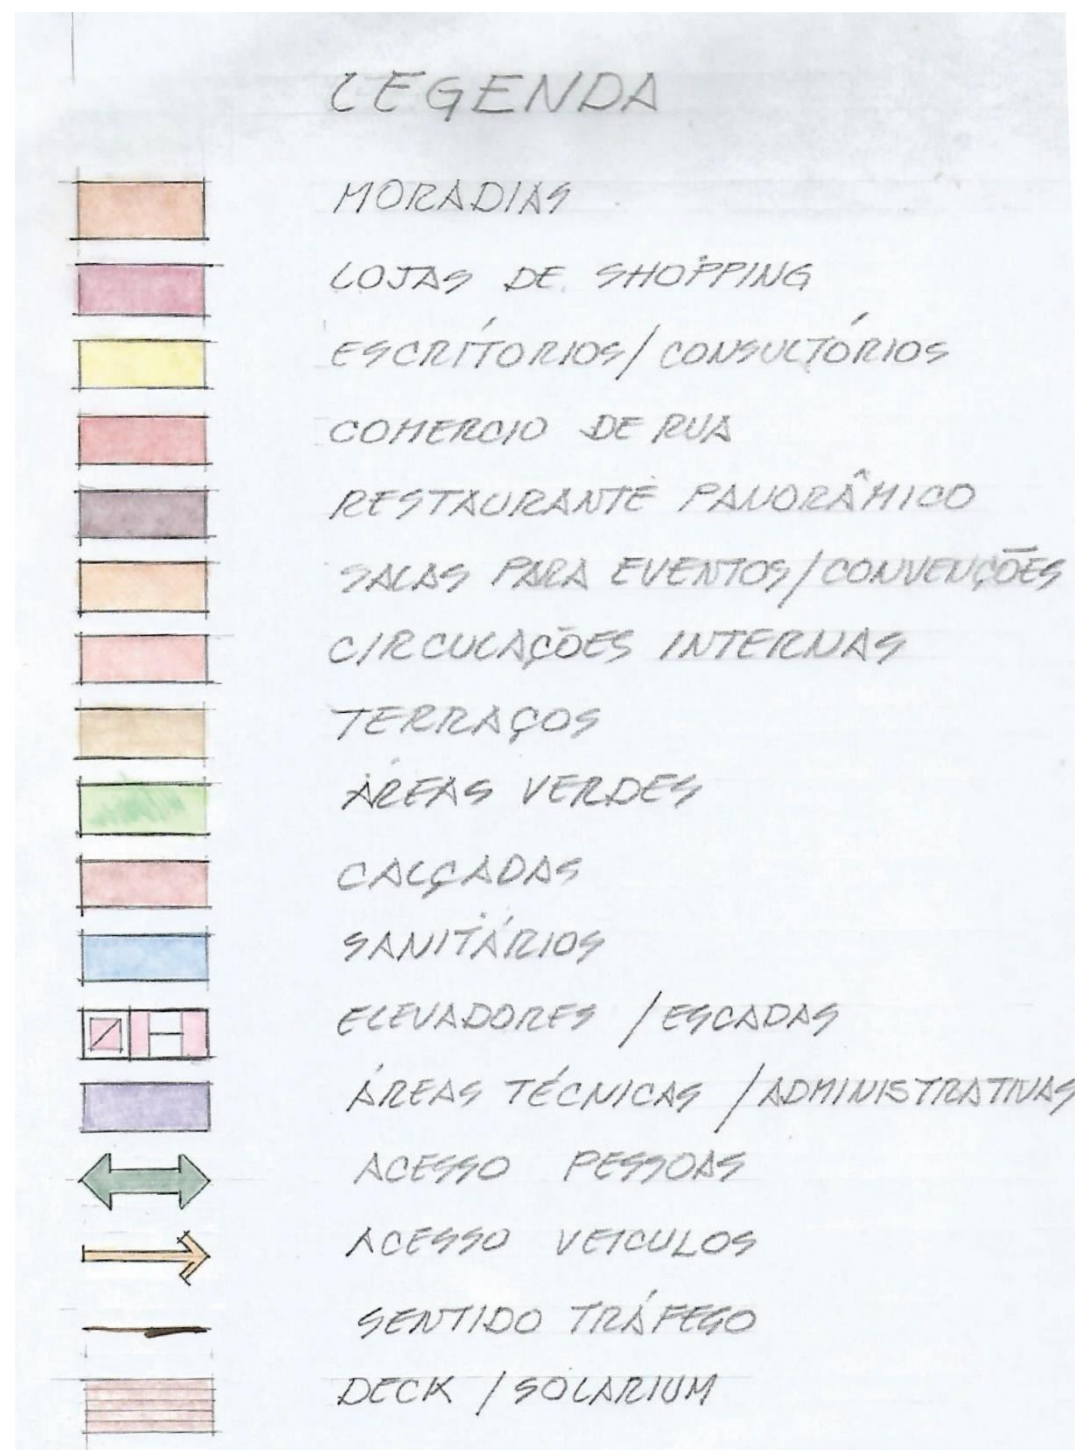 LEGENDA
MORADIAS
LOJAS DE SHOPPING
ESCRITÓRIOS/CONSULTÓRIOS
COMERCIO DE RUA
RESTAURANTE PANORÂMICO
SALAS PARA EVENTOS/CONVENÇÕES
CIRCULAÇÕES INTERNAS
TERRAÇOS
ÁREAS VERDES
CALÇADAS
SANITÁRIOS
ELEVADORES /ESCADAS
ÁREAS TÉCNICAS /ADMINISTRATIVAS
ACESSO PESSOAS
ACESSO VEICULOS
SENTIDO TRÁFEGO
DECK / SOLARIUM